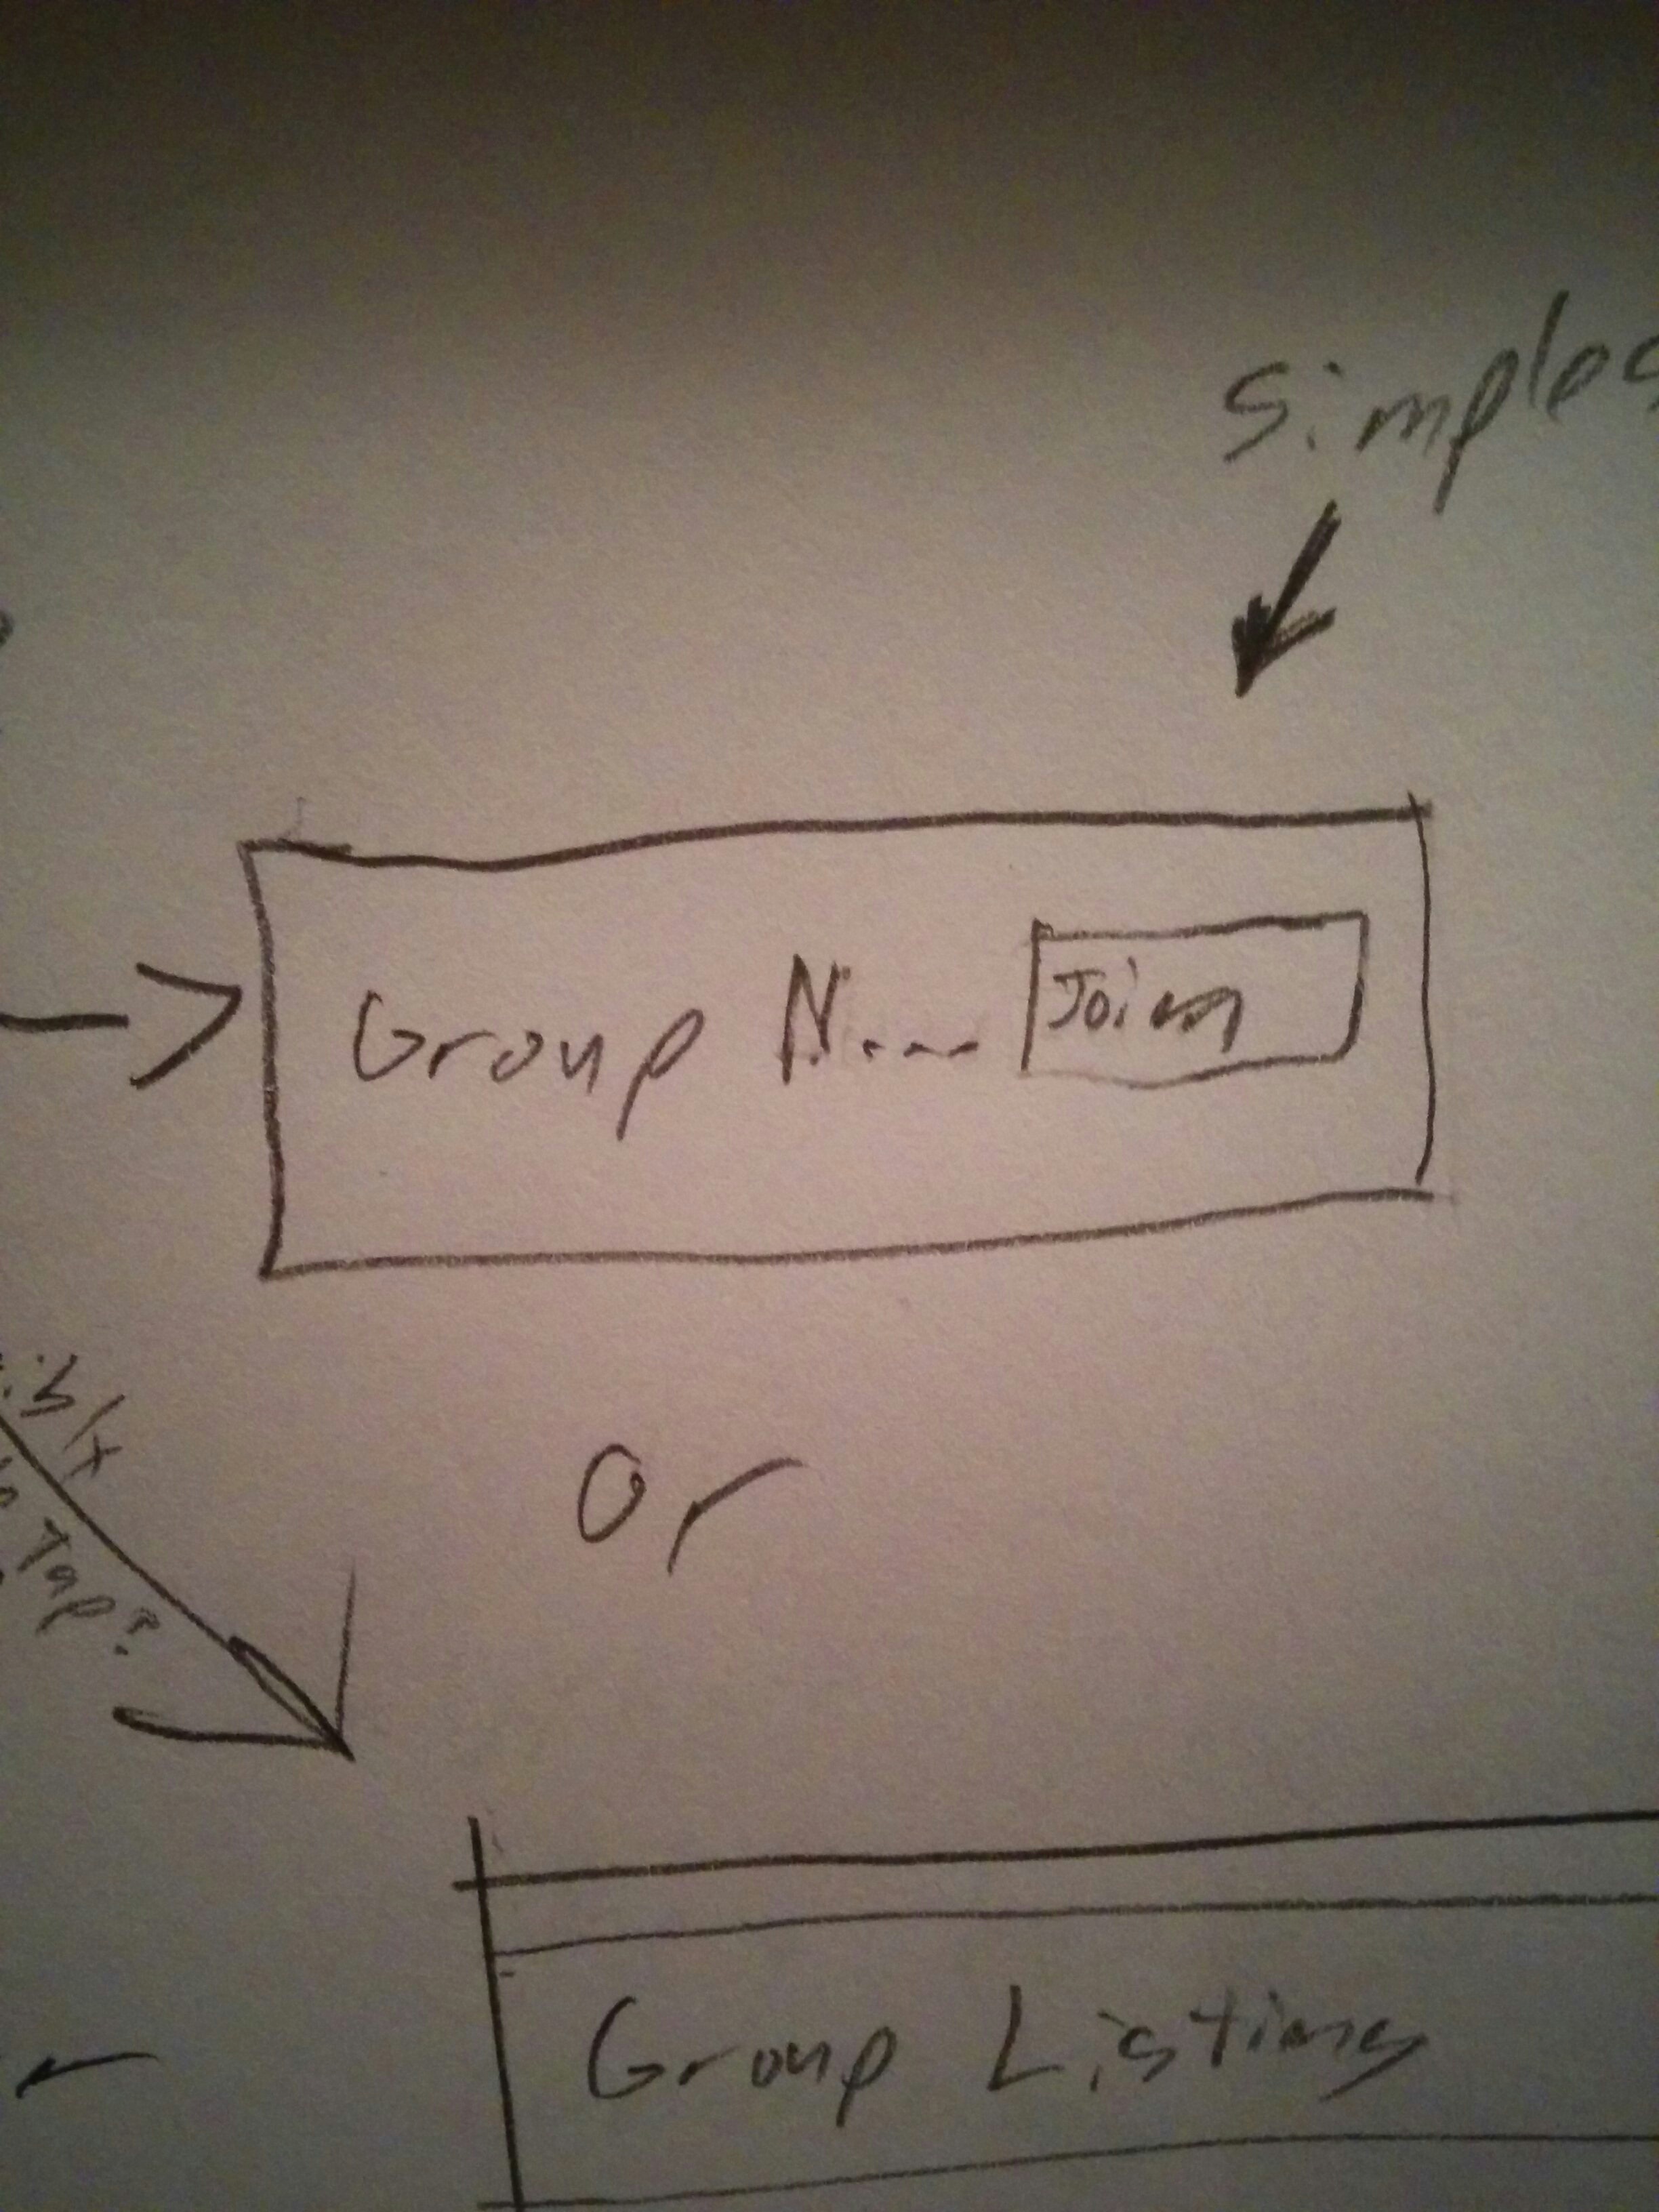 Simples
Group N....
Join
or
Tap?
Group Listings